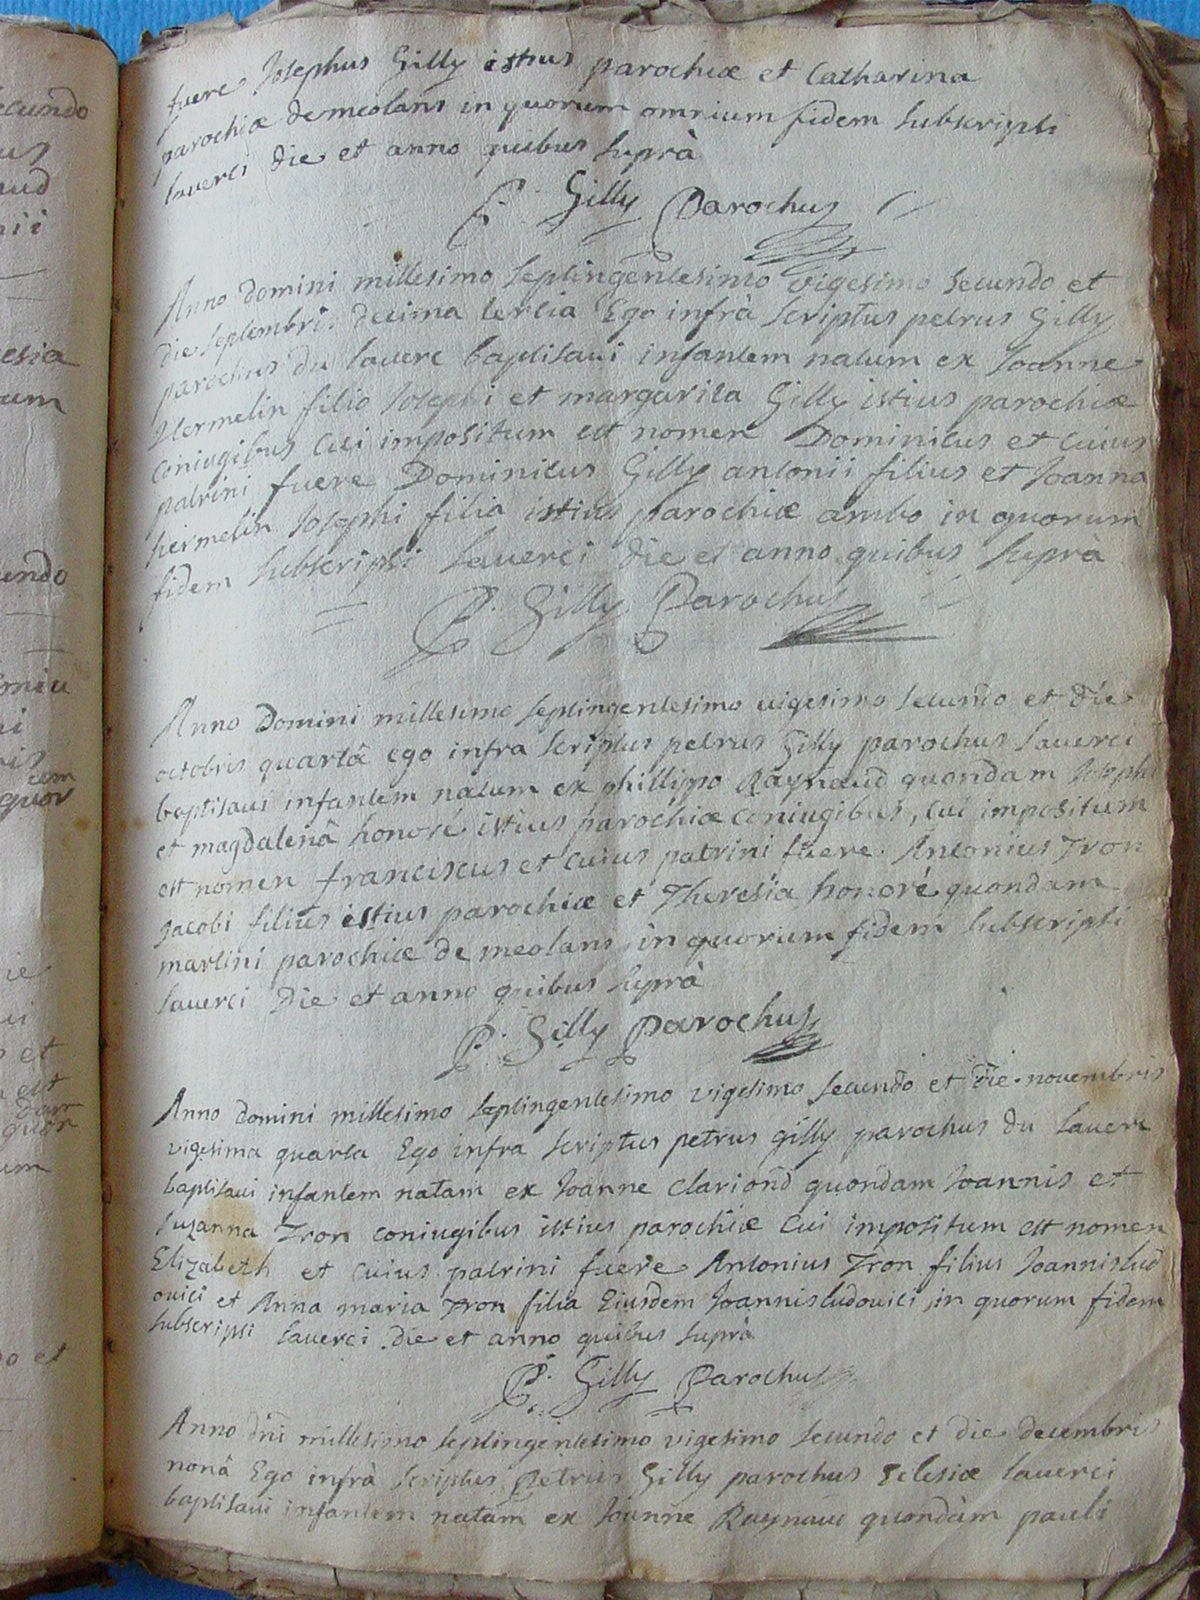 fuere Josephus Gilly istius parochiæ et Catharina
parochiæ de meolans in quorum omnium fidem subscripsi
laverci die et anno quibus suprà
P. Gilly Parochus
Anno domini millesimo septingentesimo vigesimo secundo et
die septembris decima tertia Ego infrà scriptus petrus Gilly
parochus du laverc baptisavi infantem natum ex Joanne
Hermelin filio Josephi et margarita Gilly istius parochiæ
coniugibus cui impositum est nomen Dominicus et cuius
patrini fuere Dominicus Gilly antonii filius et Joanna
hermelin Josephi filia istius parochiæ ambo in quorum
fidem subscripsi laverci die et anno quibus suprà
P. Gilly Parochus
Anno Domini millesimo septingentesimo vigesimo secundo et die
octobris quartâ ego infra scriptus petrus Gilly parochus laverci
baptisavi infantem natum ex phillippo Raynaud quondam Josephi
et magdalenâ honoré istius parochiæ coniugibus, cui impositum
est nomen franciscus et cuius patrini fuere Antonius Tron
Jacobi filius istius parochiæ et Theresia honoré quondam
martini parochiæ de meolans in quorum fidem subscripsi
laverci Die et anno quibus suprà
P. Gilly Parochus
Anno domini millesimo septingentesimo vigesimo secundo et die novembris
vigesima quarta Ego infra scriptus petrus gilly parochus du laverc
baptisavi infantem natam ex Joanne clariond quondam Joannis et
suzanna Tron coniugibus istius parochiæ cui impositum est nomen
Elizabeth et cuius patrini fuere Antonius Tron filius Joannis lud
ovici et Anna maria Tron filia Eiusdem Joannis ludovici in quorum fidem
subscripsi laverci die et anno quibus suprà
P. Gilly Parochus
Anno dni millesimo septingentesimo vigesimo secundo et die decembris
nonâ Ego infrà scriptus Petrus Gilly parochus Eclesiæ laverci
baptisavi infantem natam ex Joanne Raynaud quondam pauli